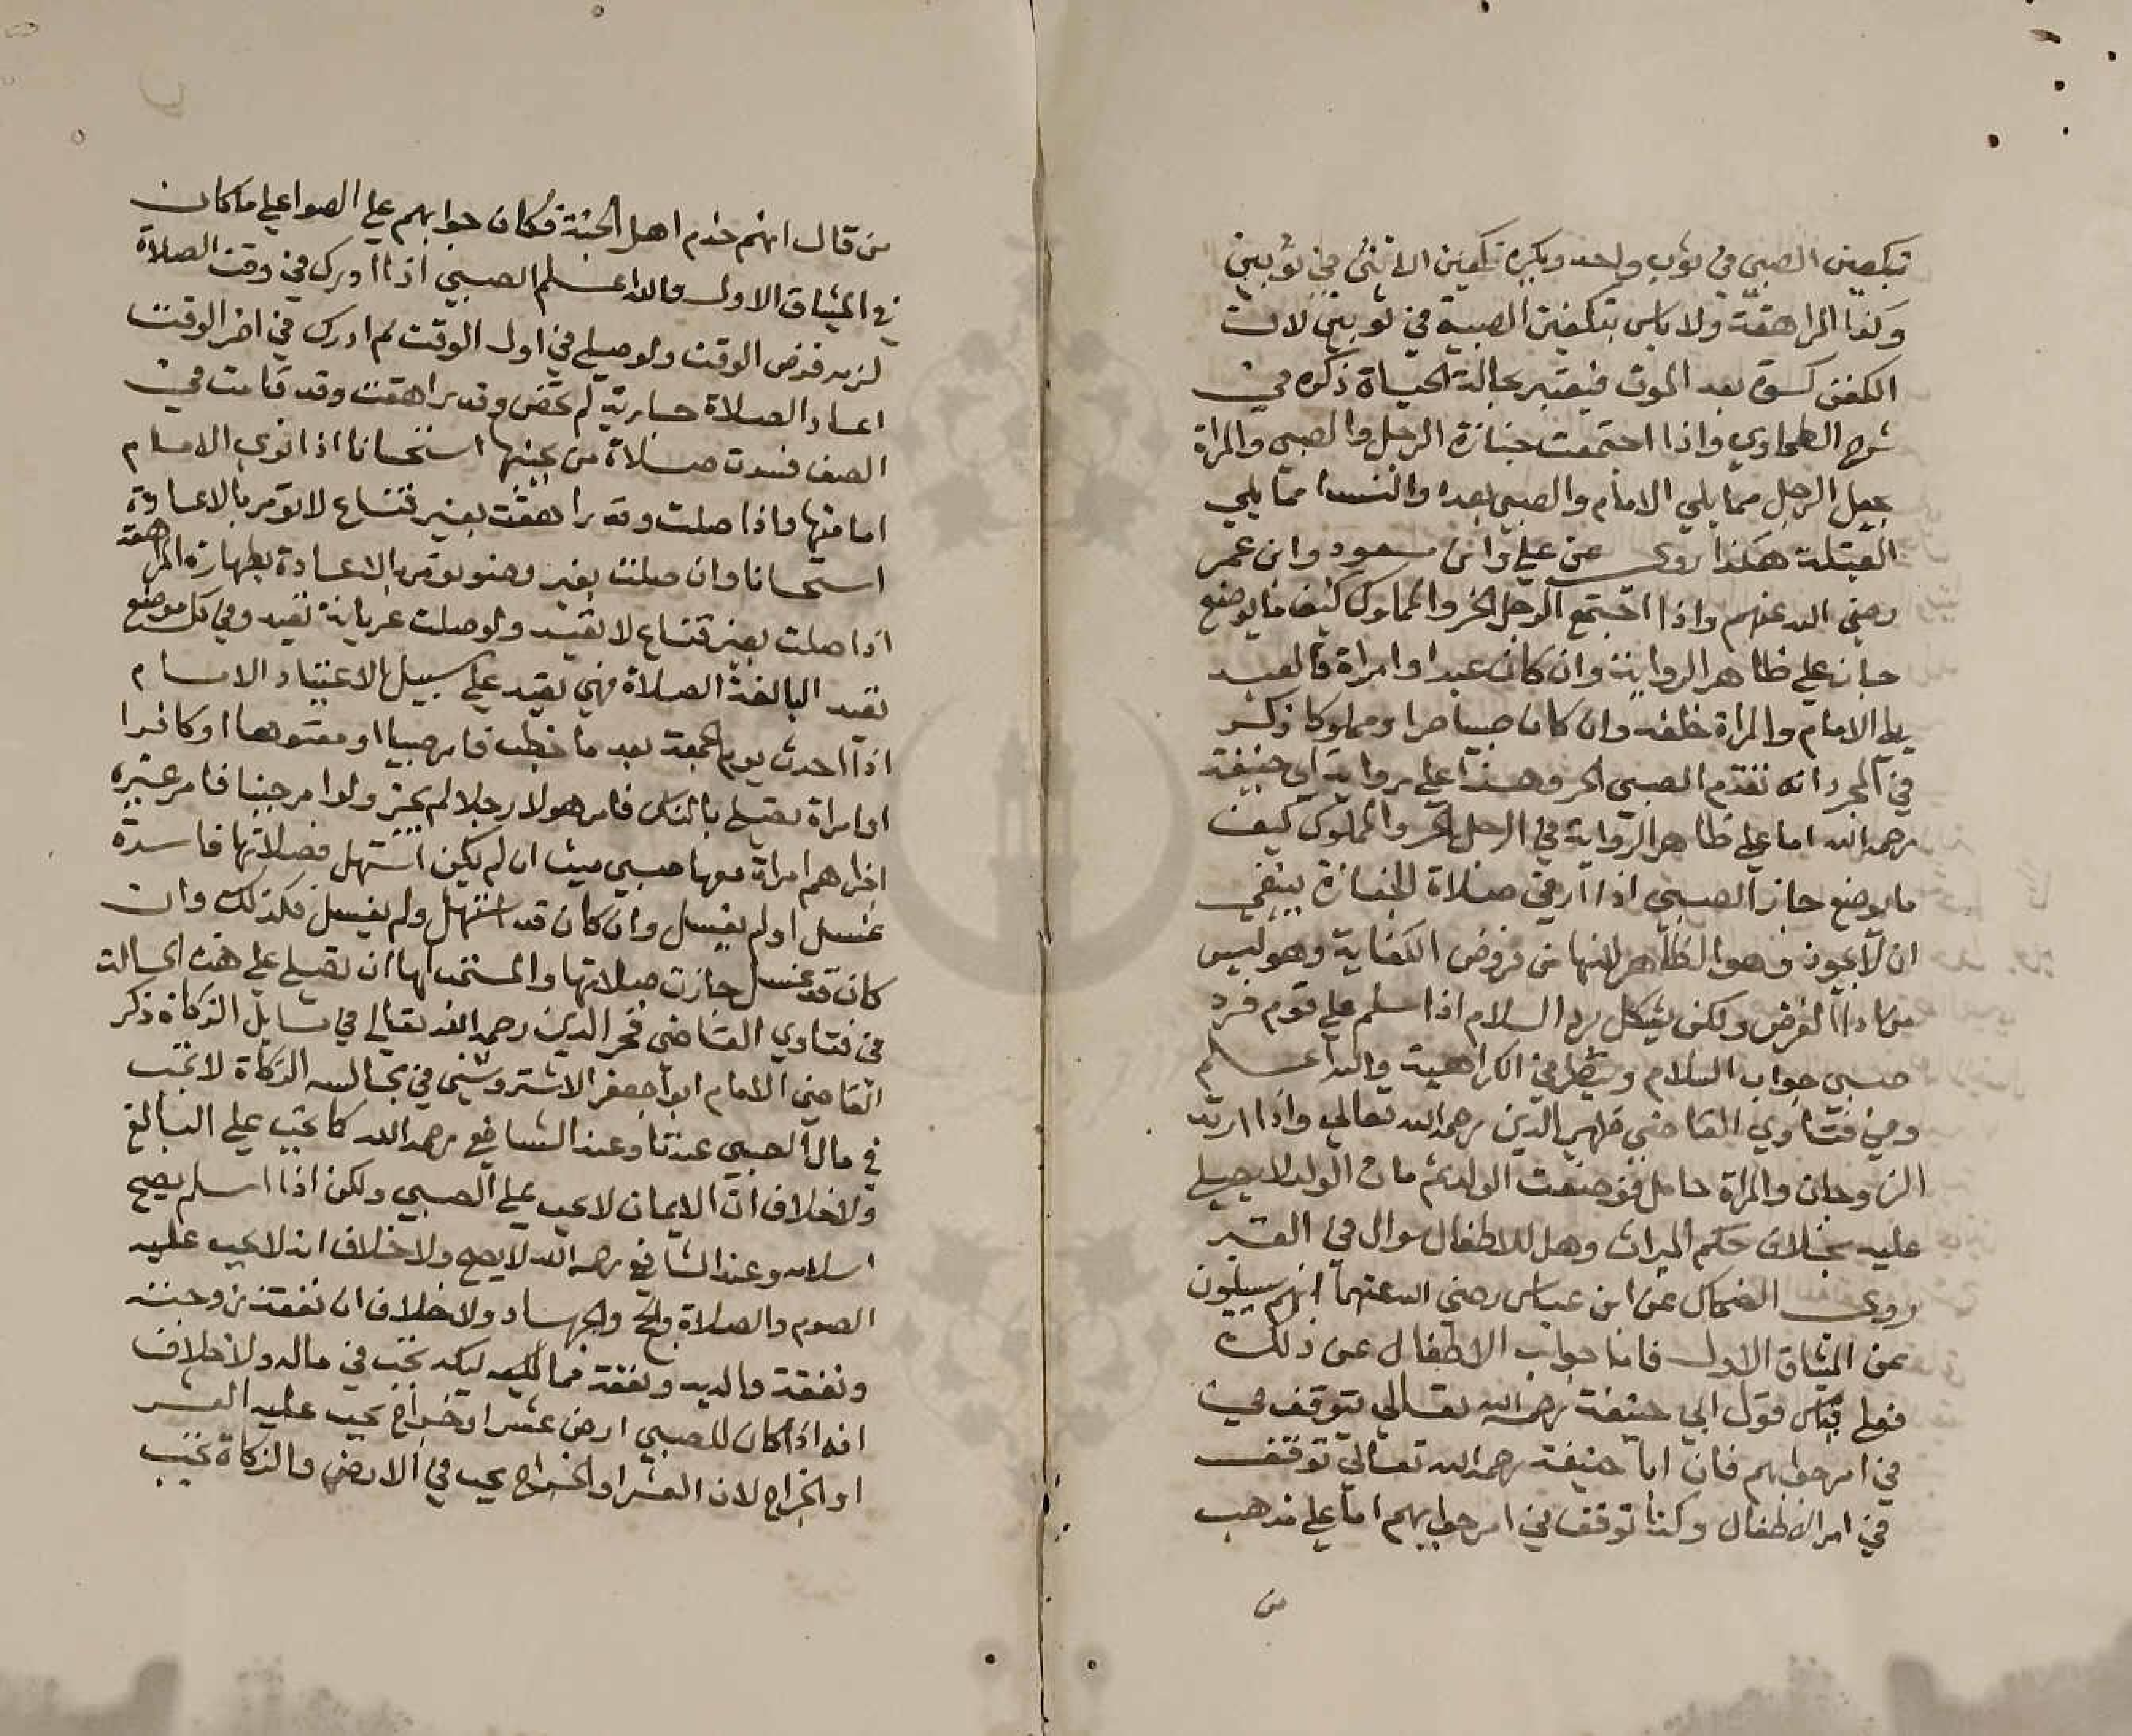 بتكفين الصبي في ثوب واحد ويكره تكفين الانثى في ثوبين
وكذا المراهقة ولا باس بتكفين الصبية في ثوبين لان
الكفن كسوة بعد الموت فيعتبر بحالة الحياة ذكره في
شرح الطحاوي واذا اجتمعت جنازة الرجل والصبي والمراة
جعل الرجل مما يلي الامام والصبي بعده والنسا مما يلي
القبلة هكذا روى عن علي وابن مسعود وابن عمر
رضي الله عنهم واذا اجتمع الرجل الحر والمملوك كيف ما يوضع
جاز على ظاهر الرواية وان كان عبدا وامراة فالعبد
يلي الامام والمراة خلفه وان كان صبيا حرا ومملوكا ذكر
في المجرد انه تقدم الصبي الحر وهذا على رواية ابي حنيفة
رحمه الله اما على ظاهر الرواية في الرجل الحر والمملوك كيف
ما يوضع جاز الصبي اذا ام في صلاة الجنازة ينبغي
ان لا يجوز وهو الظاهر لانها من فروض الكفاية وهو ليس
من اداا الفرض ولكن يشكل برد السلام اذا سلم على قوم فرد
صبي جواب السلام وينظر في الكراهية والله اعلم
وفي فتاوي القاضي ظهير الدين رحمه الله تعالى واذا ارتد
الزوجان والمراة حامل فوضعت الولد ثم مات الولد لا يصلي
عليه بخلاف حكم الميراث وهل للاطفال سوال في القبر
روى الضحاك عن ابن عباس رضي الله عنهما انهم سيلون
عن الميثاق الاول فاما جواب الاطفال عن ذلك
فعلى قياس قول ابي حنيفة رحمه الله تعالى يتوقف في
في امر جوابهم فان ابا حنيفة رحمه الله تعالى توقف
في امر الاطفال وكذا توقف في امر جوابهم اما على مذهب
من
من قال انهم خدم اهل الجنة فكان جوابهم على الصوا على ما كان
في الميثاق الاول والله اعلم الصبي اذا ادرك في وقت الصلاة
لزمه فرض الوقت ولو صلى في اول الوقت ثم ادرك في اخر الوقت
اعاد الصلاة جارية لم تحض وقد راهقت وقد قامت في
الصف فسدت صلاة من بجنبها استحسانا اذا نوى الامام
امامتها واذا صلت وقد راهقت بغير قناع لا تومر بالاعادة
استحسانا وان صلت بغير وضو تومر بالاعادة بطهارة المراهقة
اذا صلت بغير قناع لا تعيد ولو صلت عريانة تعيد وفي كل موضع
تعيد البالغة الصلاة فهي تعيد على سبيل الاعتياد الامام
اذا احدث يوم الجمعة بعد ما خطب فامر صبيا او معتوها او كافرا
او امراة يصلي بالناس فامر هولا رجلا لم يجز ولو امر جنبا فامر غيره
اجزاهم امراة معها صبي ميت ان لم يكن استهل فصلاتها فاسدة
غسل او لم يغسل وان كان قد استهل ولم يغسل فكذلك وان
كان قد غسل جازت صلاتها والمستحب لها ان تصلي على هذه الحالة
في فتاوي القاضي فخر الدين رحمه الله تعالى في مسايل الزكاة ذكر
القاضي الامام ابوا جعفر الاشتروشني في مجالسه الزكاة لا تجب
في مال الصبي عندنا وعند الشافعي رحمه الله كا تجب على البالغ
ولا خلاف ان الايمان لا يجب على الصبي ولكن اذا اسلم يصح
اسلامه وعند الشافعي رحمه الله لا يصح ولا خلاف انه لا يجب عليه
الصوم والصلاة والحج والجهاد ولا خلاف ان نفقة زوجته
ونفقة والديه ونفقة مماليكه تجب في ماله ولا خلاف
انه اذا كان للصبي ارض عشر او خراج يجب عليه العشر
او الخراج لان العشر او الخراج يجب في الارض والزكاة تجب